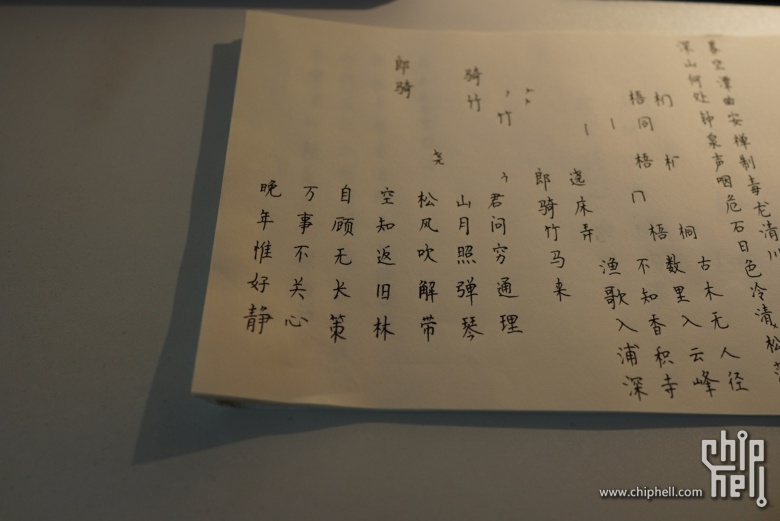 晚年惟好静
万事不关心
自顾无长策
空知返旧林
郎骑
松风吹解带
尧
山月照弹琴
骑竹
君问穷通理
竹
郎骑竹马来
遶床弄
渔歌入浦深
梧同梧
梧
不知香积寺
桐
数里入云峰
古木无人径
深山何处钟泉声咽危石日色冷清松薄
暮空潭曲安禅制毒龙清川
www.chiphell.com
chip hell